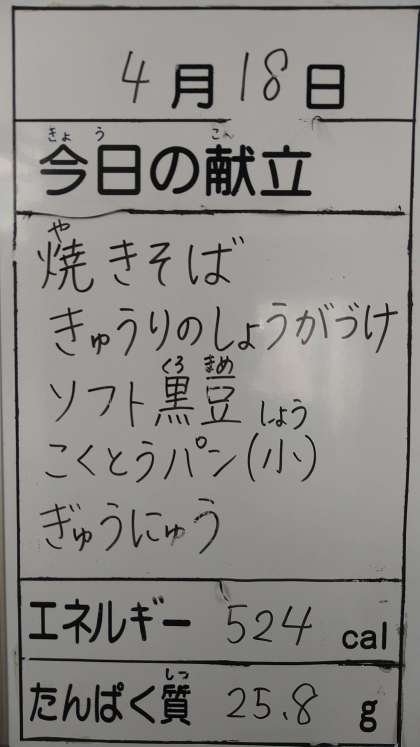 4月18日
きょう こん
今日の献立
や
焼きそば
きゅうりのしょうがづけ
くろ まめ
ソフト黒豆
しょう
こくとうパン(小)
ぎゅうにゅう
エネルギー 524 cal
しつ
たんぱく質 25.8 g